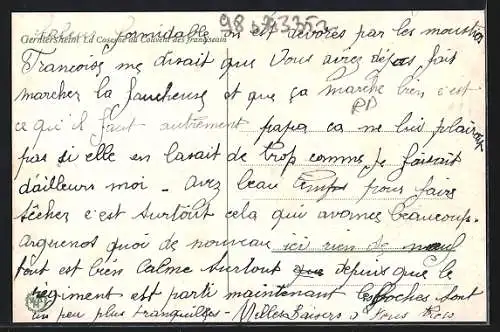 98 - 23352
Germersheim La Caserne du Couvent des franciscain
formidable on est dévorés par les moustiq
Françoise me disait que Vous aviez déjas fait
marcher la faucheuse et que ça marche bien c'est
ce qu'il faut autrement papa ca ne lui plairait
pas si elle en cassait de trop comme Je faisait
d'ailleurs moi - avez beau temps pour faire
sécher c'est surtout cela qui avance beaucoup-
quoi de nouveau ici rien de neuf
tout est bien Calme surtout depuis que le
régiment est parti maintenant les Boches sont
un peu plus tranquilles - Milles Baisers à Vous Trois